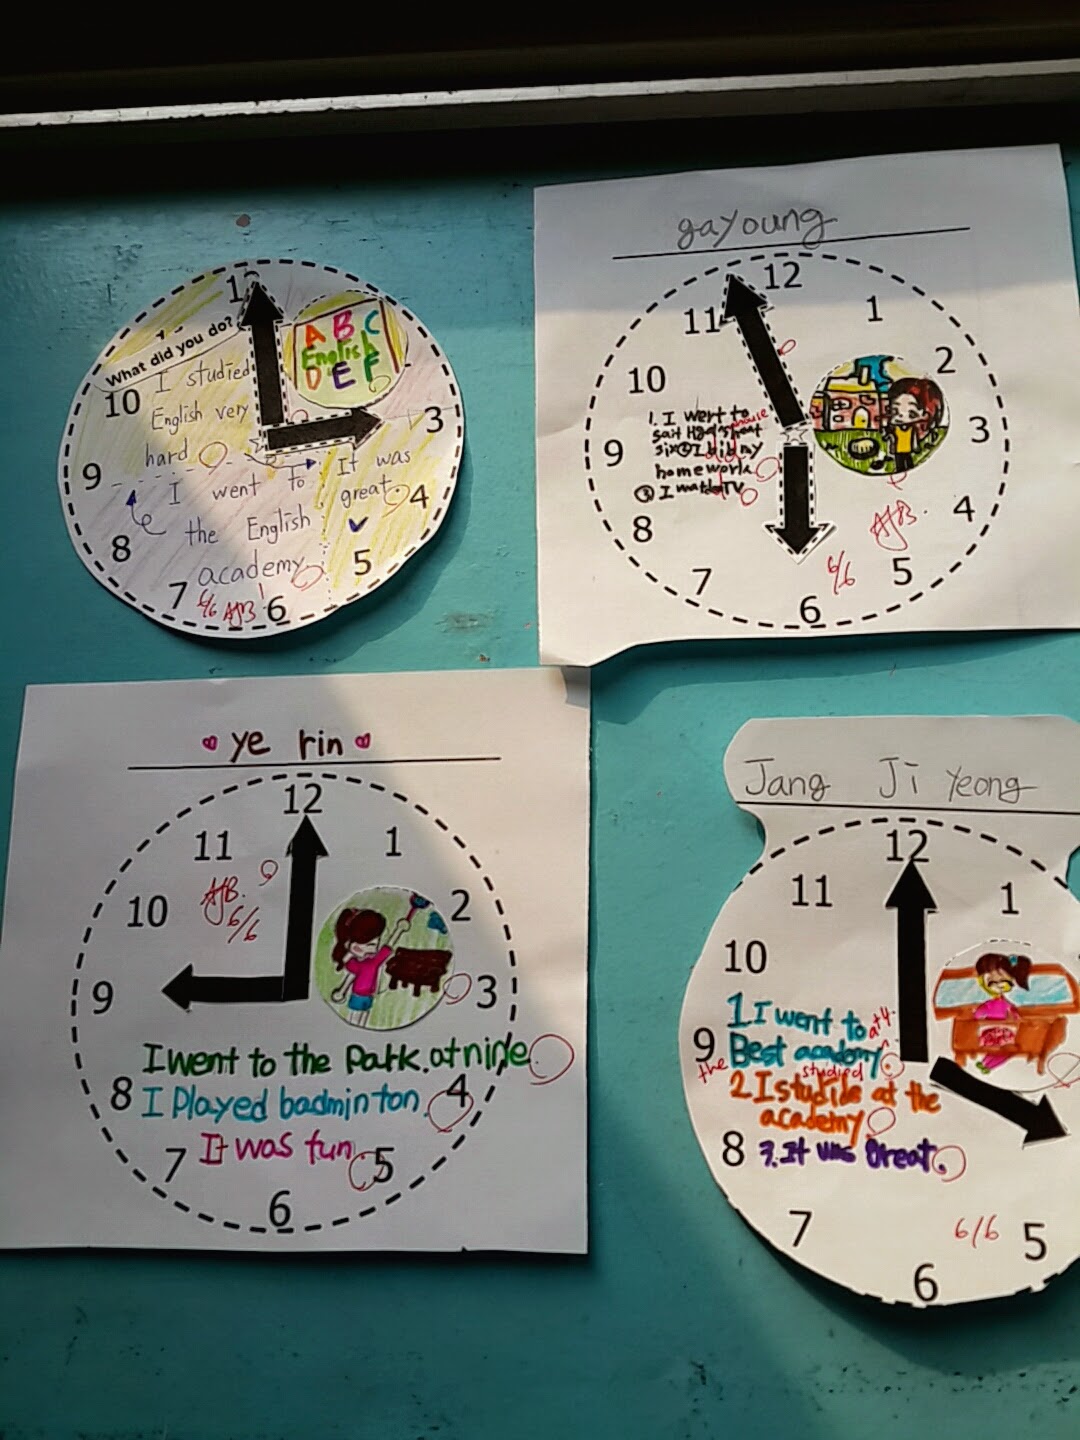 What did you do?
I studied
English very
hard
I went to
the English
academy
It was
great.
A B C
English
D E F
12
3
4
5
6
7
8
9
10
6/6 AJB
gayoung
12
1
2
3
4
5
6
7
8
9
10
11
1. I went to
house
homework
TV
AJB.
6/6
ye rin
12
1
2
3
4
5
6
7
8
9
10
11
AJB.
6/6
I went to the Park. at nine
I Played badminton.
It was fun
Jang Ji Yeong
12
1
5
6
7
8
9
10
11
1. I went to at 4.
the Best academy.
studied
2. I studids at the
academy
3. It was Great.
6/6